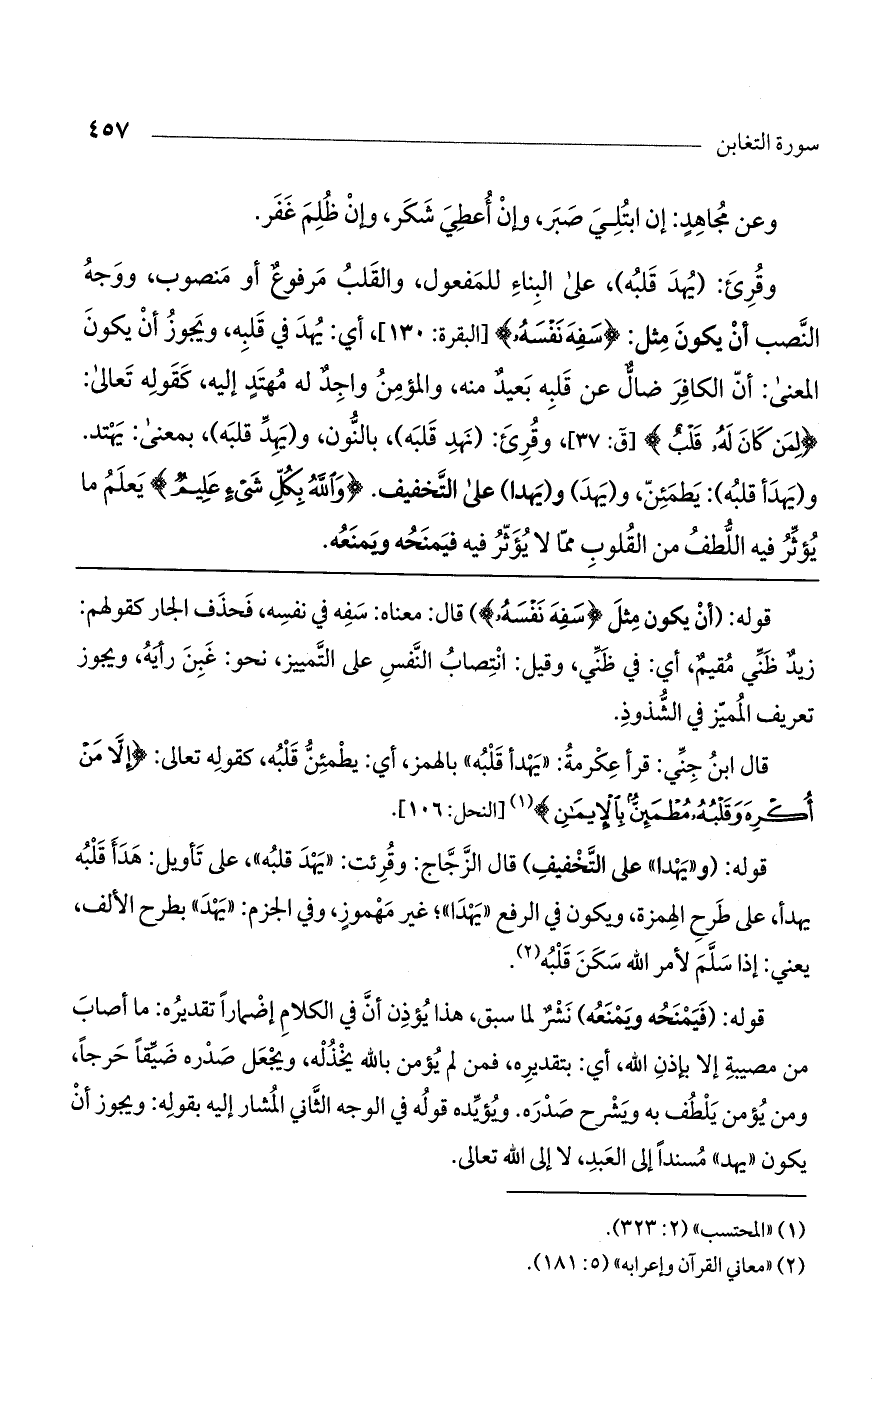 سورة التغابن ٤٥٧
وعن مُجاهِدٍ: إن ابتُلِيَ صَبَر، وإنْ أُعطِيَ شَكَر، وإنْ ظُلِمَ غَفَر.
وقُرِئَ: (يُهدَ قَلبُه)، علىٰ البِناءِ للمَفعول، والقَلبُ مَرفوعٌ أو مَنصوب، ووَجهُ
النَّصب أنْ يكونَ مِثل: ﴿سَفِهَ نَفْسَهُۥ﴾ [البقرة: ١٣٠]، أي: يُهدَ في قَلبِه، ويَجوزُ أنْ يكونَ
المعنىٰ: أنّ الكافِرَ ضالٌّ عن قَلبِه بَعيدٌ منه، والمؤمِنُ واجِدٌ له مُهتَدٍ إليه، كَقَولِه تَعالىٰ:
﴿لِمَن كَانَ لَهُۥ قَلْبٌ﴾ [قۤ: ٣٧]، وقُرِئَ: (نَهدِ قَلبَه)، بالنُّون، و(يَهِدِّ قلبَه)، بمعنىٰ: يَهْتد.
و(يَهدَأ قلبُه): يَطمَئِنّ، و(يَهدَ) و(يَهدا) علىٰ التَّخفيف. ﴿وَٱللَّهُ بِكُلِّ شَىْءٍ عَلِيمٌ﴾ يَعلَمُ ما
يُؤثِّرُ فيه اللُّطفُ من القُلوبِ ممّا لا يُؤثِّرُ فيه فيَمنَحُه ويَمنَعُه.
قوله: (أنْ يكون مِثلَ ﴿سَفِهَ نَفْسَهُۥ﴾) قال: معناه: سَفِه في نفسِه، فَحذَف الجار كقولهم:
زيدٌ ظَنِّي مُقيمٌ، أي: في ظَنِّي، وقيل: انْتِصابُ النَّفسِ على التَّمييز، نحو: غَبِنَ رأيَهُ، ويجوز
تعريف المُميّز في الشُّذوذِ.
قال ابنُ جِنِّي: قرأ عِكْرمةُ: «يَهْدأ قَلْبُه» بالهمز، أي: يطْمئِنُّ قَلْبُه، كقولِه تعالى: ﴿إِلَّا مَنْ
أُكْرِهَ وَقَلْبُهُۥ مُطْمَئِنٌّۢ بِٱلْإِيمَٰنِ﴾(١) [النحل: ١٠٦].
قوله: (و«يَهْدا» على التَّخْفيفِ) قال الزَّجَّاج: وقُرِئت: «يَهْدَ قلبُه»، على تَأويل: هَدَأَ قَلْبُه
يهدأ، على طَرحِ الهمزة، ويكون في الرفع «يَهْدَا»؛ غير مَهْموزٍ، وفي الجزم: «يَهْدَ» بطرح الألف،
يعني: إذا سَلَّمَ لأمر الله سَكَنَ قَلْبُه(٢).
قوله: (فَيَمْنَحُه ويَمْنَعُه) نَشْرٌ لما سبق، هذا يُؤذِن أنَّ في الكلامِ إضْماراً تقديرُه: ما أصابَ
من مصيبةٍ إلا بإذنِ الله، أي: بتقديرِه، فمن لم يُؤمن بالله يخْذُلْه، ويجْعَل صَدْره ضَيِّقاً حَرجاً،
ومن يُؤمن يَلْطُف به ويَشْرح صَدْرَه. ويُؤيِّده قولُه في الوجه الثَّاني المُشار إليه بقولِه: ويجوز أنْ
يكون «يهد» مُسنداً إلى العَبدِ، لا إلى الله تعالى.
(١) «المحتسب» (٢: ٣٢٣).
(٢) «معاني القرآن وإعرابه» (٥: ١٨١).